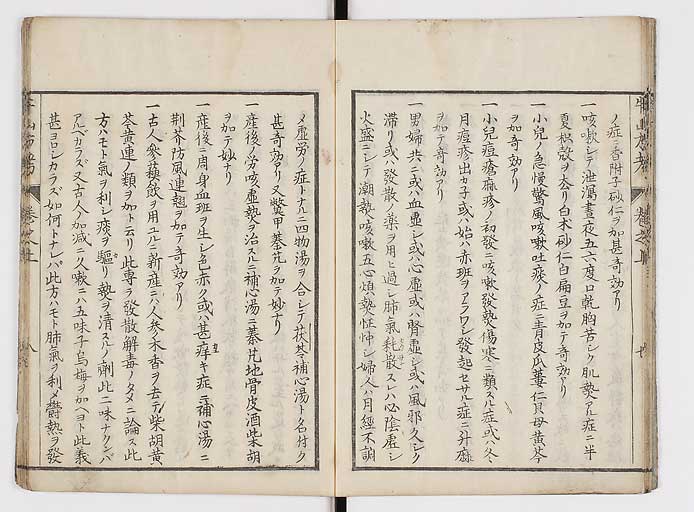 ノ症ニ香附子砂仁ヲ加甚奇効アリ
一咳嗽シテ泄瀉晝夜五六度口乾胸苦シク肌熱アル症ニ半
夏枳殻ヲ去リ白朮砂仁白扁豆ヲ加テ奇効アリ
一小兒ノ急慢驚風咳嗽吐痰ノ症ニ青皮瓜蔞仁貝母黄芩
ヲ加テ奇効アリ
一小兒痘瘡麻疹ノ初發ニ咳嗽發熱傷寒ニ類スル症或ハ冬
月痘疹出カ子或ハ始ハ赤班ヲアラワシ發起セサル症ニ升麻
ヲ加テ奇効アリ
一男婦共ニ或ハ血虚シ或ハ心虚或ハ腎虚シ或ハ風邪久シク
滞リ或ハ發散ノ薬ヲ用ヒ過シ肺氣耗散スレハ心陰虚シ
火盛ニシテ潮熱咳嗽五心煩熱怔忡シ婦人ハ月經不調
メ虚労ノ症トナルニ四物湯ヲ合シテ茯苓補心湯ト名付ク
甚奇効アリ又鱉甲秦艽ヲ加テ妙ナリ
一産後ノ労咳虚熱ヲ治スルニ補心湯ニ秦艽地骨皮酒柴胡
ヲ加テ妙ナリ
一産後ニ周身血班ヲ生シ色赤ク或ハ甚痒キ症ニ補心湯ニ
荆芥防風連翹ヲ加テ奇効アリ
一古人ノ參蘇飲ヲ用ユルニ新産ニハ人参木香ヲ去テ柴胡黄
芩黄連ノ類ヲ加ト云リ此専ラ發散解毒ノタメニ論ス此
方ハモト氣ヲ利シ痰ヲ驅リ熱ヲ清スルノ劑此二味ナクンバ
アルベカラズ又古人ノ加減ニ久嗽ニハ五味子烏梅ヲ加ヘヨト此義
甚ヨロシカラズ如何トナレバ此方ハモト肺氣ヲ利メ欝熱ヲ發